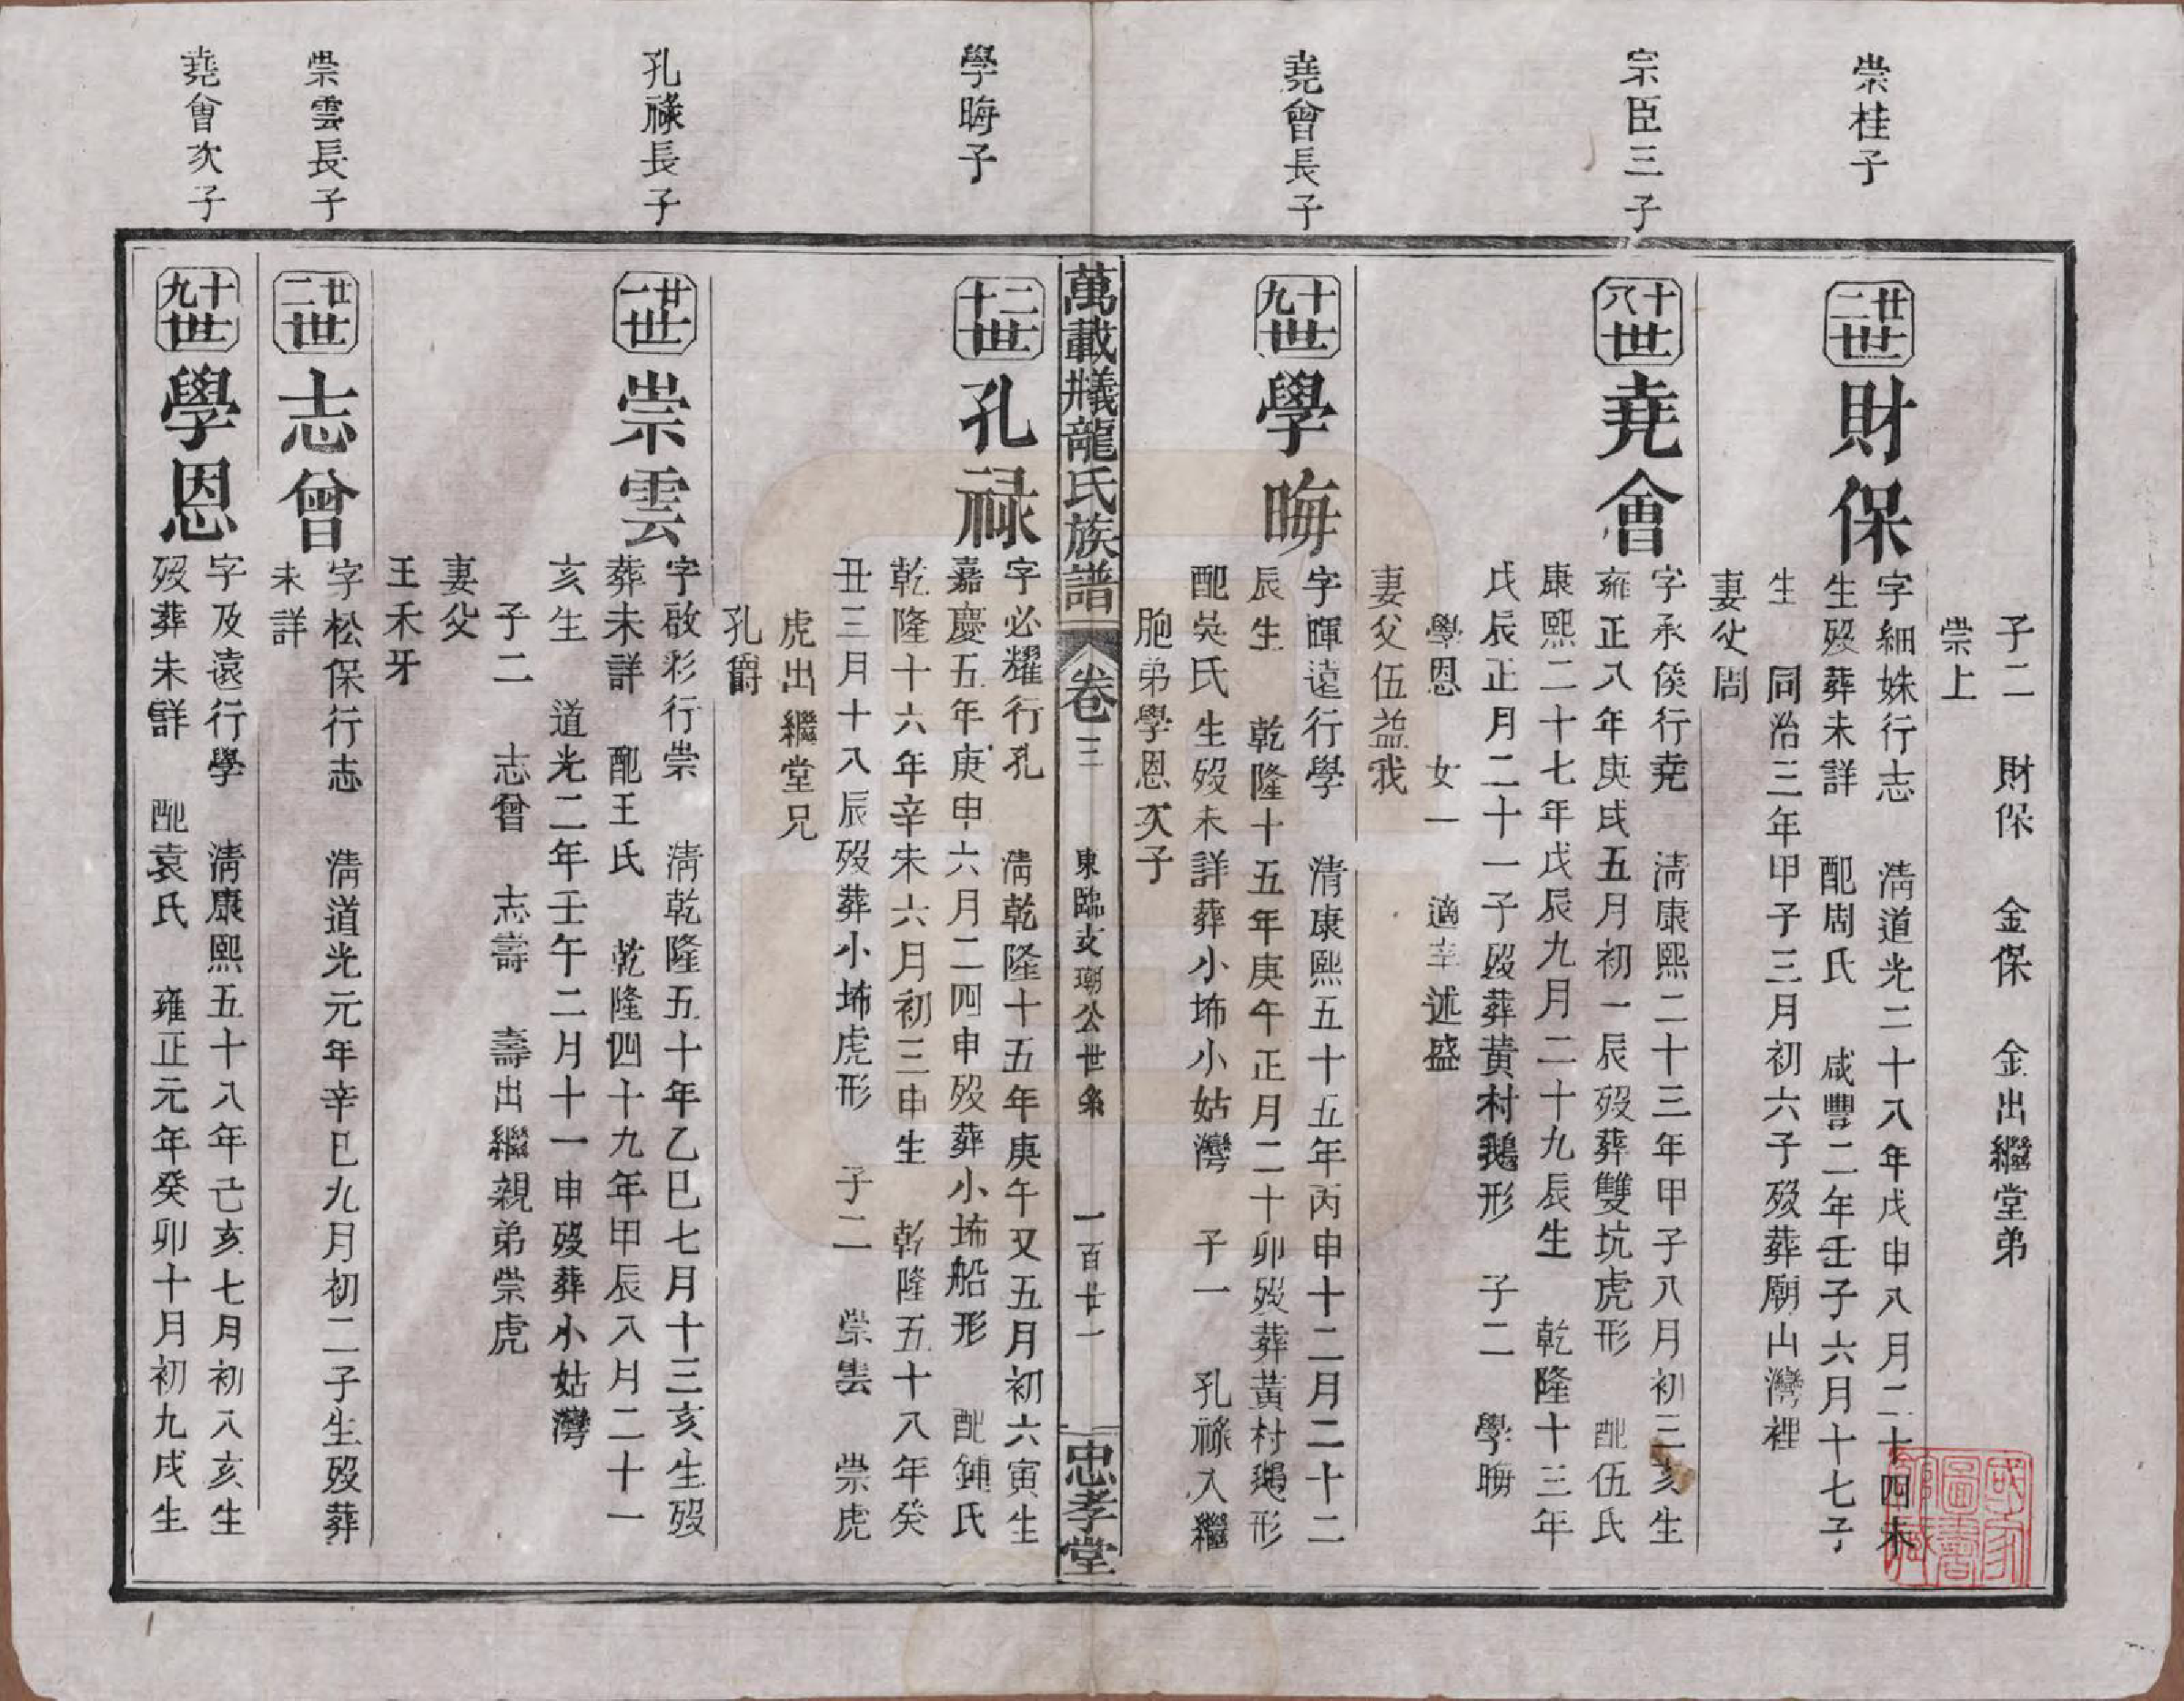 子二　財保　金保　金出繼堂弟
崇上
崇桂子
廿二世
財保
字細姝行志　淸道光二十八年戊申八月二十四未
生歿葬未詳　配周氏　咸豐二年壬子六月十七子
生　同治三年甲子三月初六子歿葬廟山灣裡
妻父周
宗臣三子
十八世
堯會
字承俟行堯　淸康熙二十三年甲子八月初三亥生
雍正八年庚戌五月初一辰歿葬雙坑虎形　配伍氏
康熙二十七年戊辰九月二十九辰生　乾隆十三年
戊辰正月二十一子歿葬黃村鵝形　子二　學晦
學恩　女一　適辛述盛
妻父伍益我
堯會長子
十九世
學晦
字暉遠行學　淸康熙五十五年丙申十二月二十二
辰生　乾隆十五年庚午正月二十卯歿葬黃村鵝形
配吳氏生歿未詳葬小㘵小姑灣　子一　孔祿入繼
胞弟學恩次子
萬載㯆龍氏族譜　卷三　東臨支瑚公世系　一百廿一　忠孝堂
學晦子
二十世
孔祿
字必耀行孔　淸乾隆十五年庚午又五月初六寅生
嘉慶五年庚申六月二四申歿葬小㘵船形　配鍾氏
乾隆十六年辛未六月初三申生　乾隆五十八年癸
丑三月十八辰歿葬小㘵虎形　子二　崇雲　崇虎
虎出繼堂兄
孔爵
孔祿長子
廿一世
崇雲
字啟彩行崇　淸乾隆五十年乙巳七月十三亥生歿
葬未詳　配王氏　乾隆四十九年甲辰八月二十一
亥生　道光二年壬午二月十一申歿葬小姑灣
子二　志曾　志壽　壽出繼親弟崇虎
妻父
王禾牙
崇雲長子
廿二世
志曾
字松保行志　淸道光元年辛巳九月初二子生歿葬
未詳
堯會次子
十九世
學恩
字及遠行學　淸康熙五十八年己亥七月初八亥生
歿葬未詳　配袁氏　雍正元年癸卯十月初九戌生